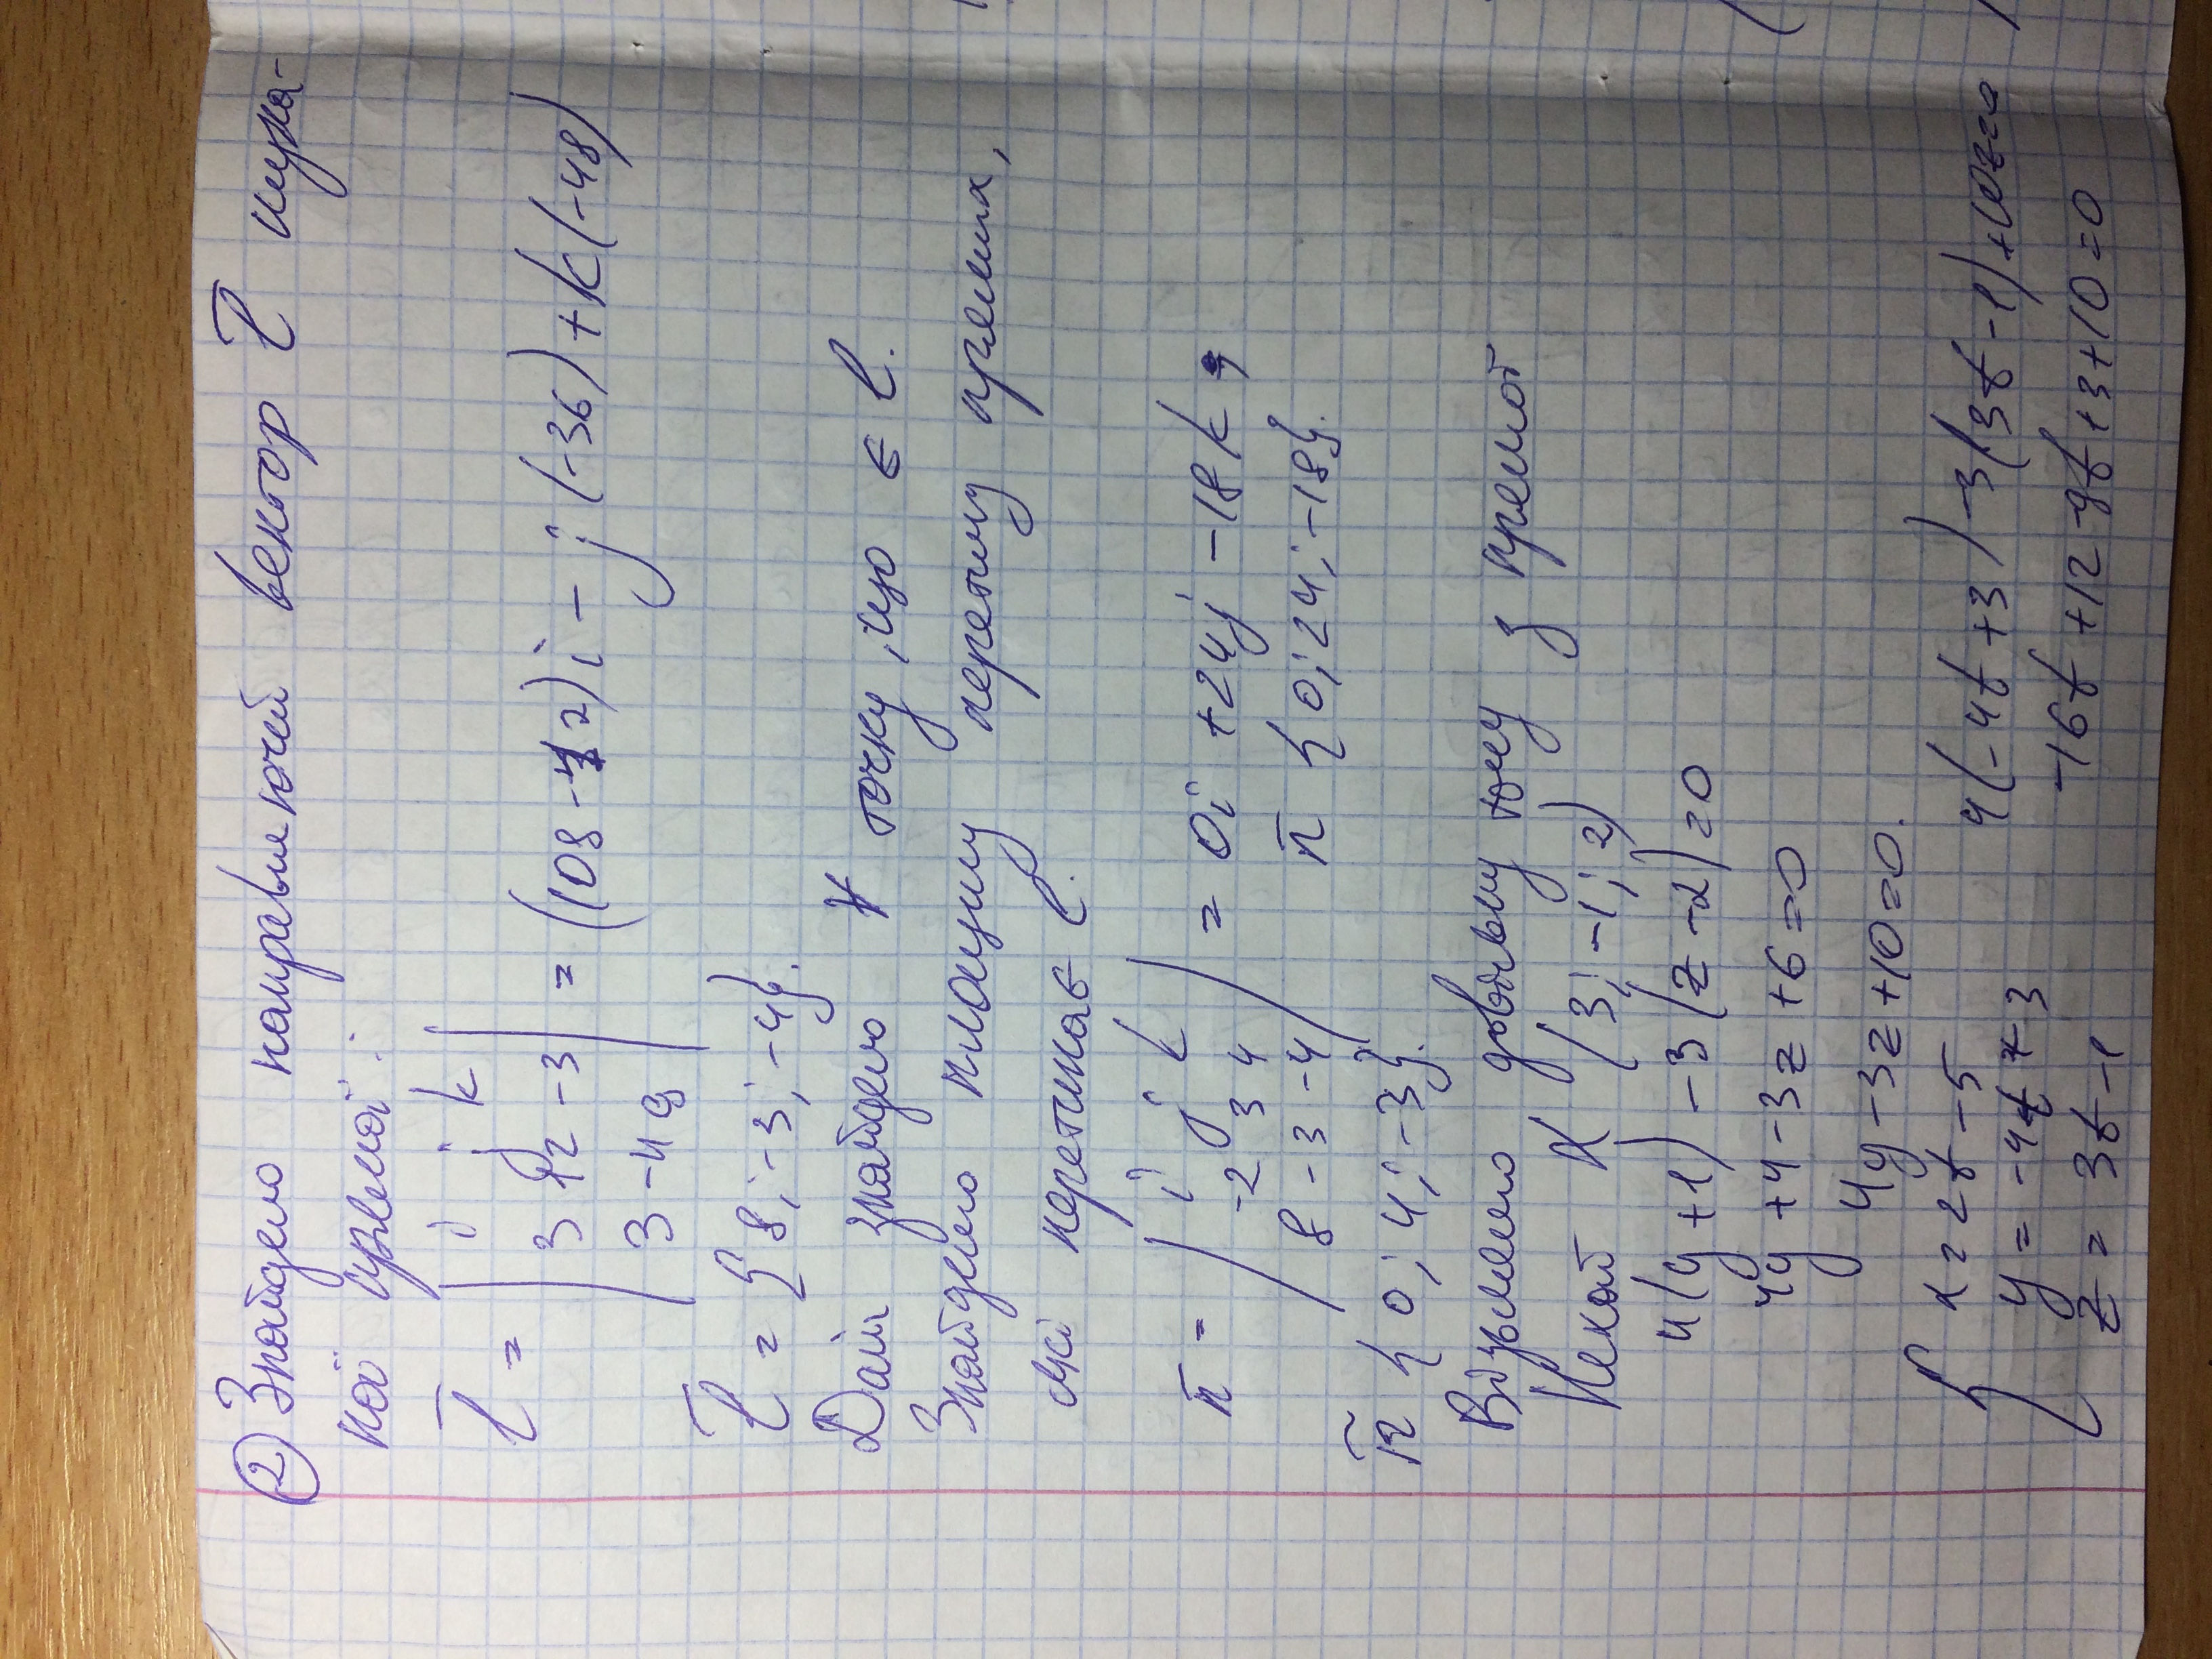 ② Знайдемо направляючий вектор l̄ шука-
ної прямої:
l̄ = | i j k |
| 3 12 -3 | = (108-12)i - j(-36) + k(-48)
| 3 -4 9 |
l̄ = {8; -3; -4}.
Далі знайдемо ∀ точку, що ∈ l.
Знайдемо площину перетину прямих,
які перетинає l.
n̄ = | i j k | = 0i + 24j - 18k
| -2 3 4 |
| 8 -3 -4 | n̄ {0; 24; -18}.
n̄ {0; 4; -3}.
Візьмемо довільну точку з прямої
Нехай K (3; -1; 2)
4(y+1) -3(z-2)=0
4y+4-3z+6=0
4y-3z+10=0.
{ x=2t-5 4(-4t+3)-3(3t-1)+10=0
y = -4t+3
z = 3t-1 -16t+12-9t+3+10=0